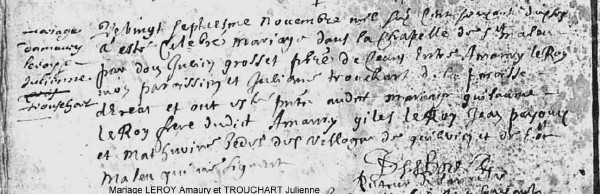 mariage
damaury
leroy
Julienne
trouchart
Le vingt septiesme Novembre mil six cent soixante dix sept
a esté Celebré Mariage dans la Chapelle de St Malou
par dom Julien grosset prbre de Entre Amaury le Roy
mon paroissien et Julienne trouchart de la paroisse
et ont esté audit mariage guilaume
le Roy frere dudict Amaury giles le Roy Jean
et Mathurine des Villages de et de
Malou qui ne signent
Mariage LEROY Amaury et TROUCHART Julienne